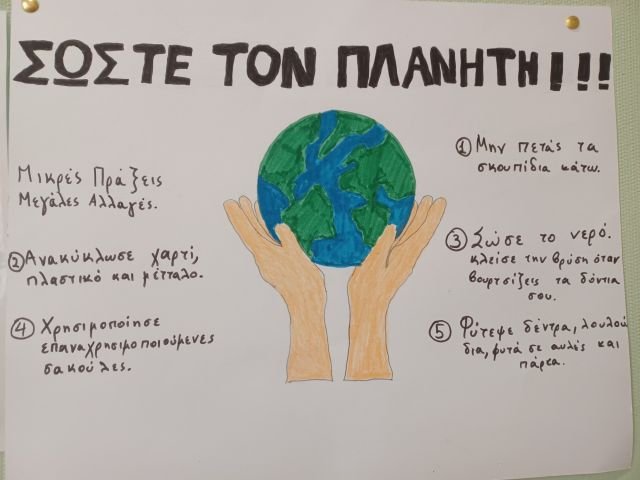 ΣΩΣΤΕ ΤΟΝ ΠΛΑΝΗΤΗ!!!
Μικρές Πράξεις
Μεγάλες Αλλαγές.
① Μην πετάς τα
σκουπίδια κάτω.
② Ανακύκλωσε χαρτί,
πλαστικό και μέτταλο.
③ Σώσε το νερό.
κλείσε την βρύση όταν
βουρτσίζεις τα δόντια
σου.
④ Χρησιμοποίησε
επαναχρησιμοποιούμενες
σακούλες.
⑤ Φύτεψε δέντρα, λουλού
δια, φυτά σε αυλές και
πάρκα.